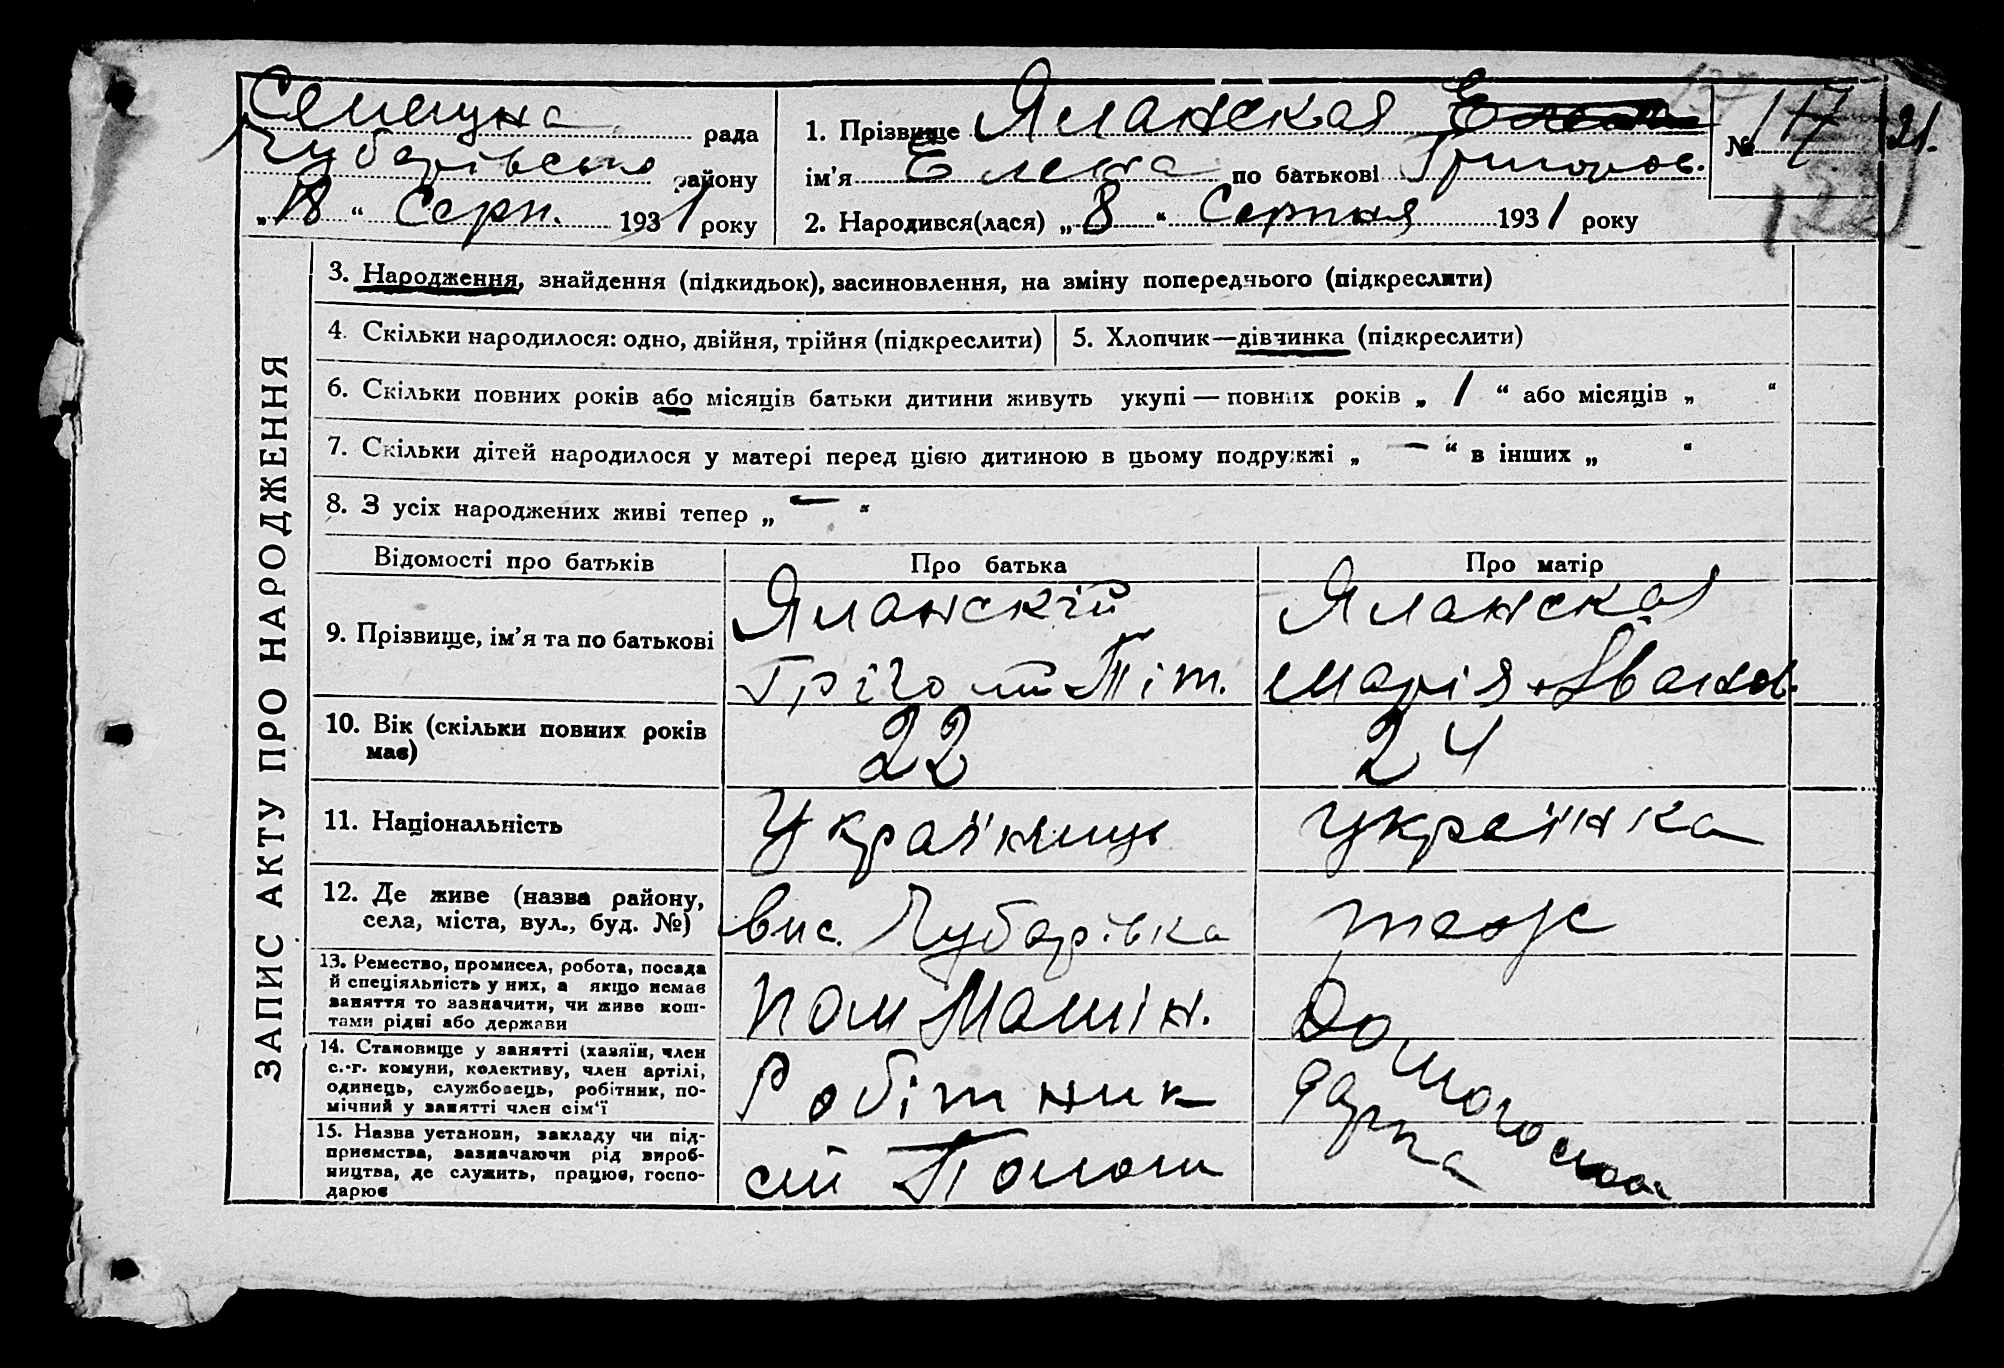 Селищна рада
Чубарівсько району
„ 18 “ Серп. 1931 року
1. Прізвище Яланская
ім’я Елена по батькові Григоров.
2. Народився(лася) „ 8 “ Серпня 1931 року
№ 117
21.
122
ЗАПИС АКТУ ПРО НАРОДЖЕННЯ
3. Народження, знайдення (підкидьок), засиновлення, на зміну попереднього (підкреслити)
4. Скільки народилося: одно, двійня, трійня (підкреслити)
5. Хлопчик—дівчинка (підкреслити)
6. Скільки повних років або місяців батьки дитини живуть укупі — повних років „ 1 “ або місяців „ “
7. Скільки дітей народилося у матері перед цією дитиною в цьому подружжі „ — “ в інших „ “
8. З усіх народжених живі тепер „ — “
Відомості про батьків Про батька Про матір
9. Прізвище, ім’я та по батькові
Яланскій
Грігорій Тіт.
Яланская
Марія Іванов.
10. Вік (скільки повних років
має)
22
24
11. Національність
Україниць
українка
12. Де живе (назва району,
села, міста, вул., буд. №)
вис. Чубарівка
тож
13. Ремество, промисел, робота, посада
й спеціяльність у них, а якщо немає
заняття то зазначити, чи живе кош-
тами рідні або держави
пом Машін.
Домогоспода
рка
14. Становище у занятті (хазяїн, член
с.-г. комуни, колективу, член артілі,
одинець, службовець, робітник, по-
мічний у занятті член сім‘ї
Робітник
15. Назва установи, закладу чи під-
приємства, зазначаючи рід вироб-
ництва, де служить, працює, госпо-
дарює
Пологи